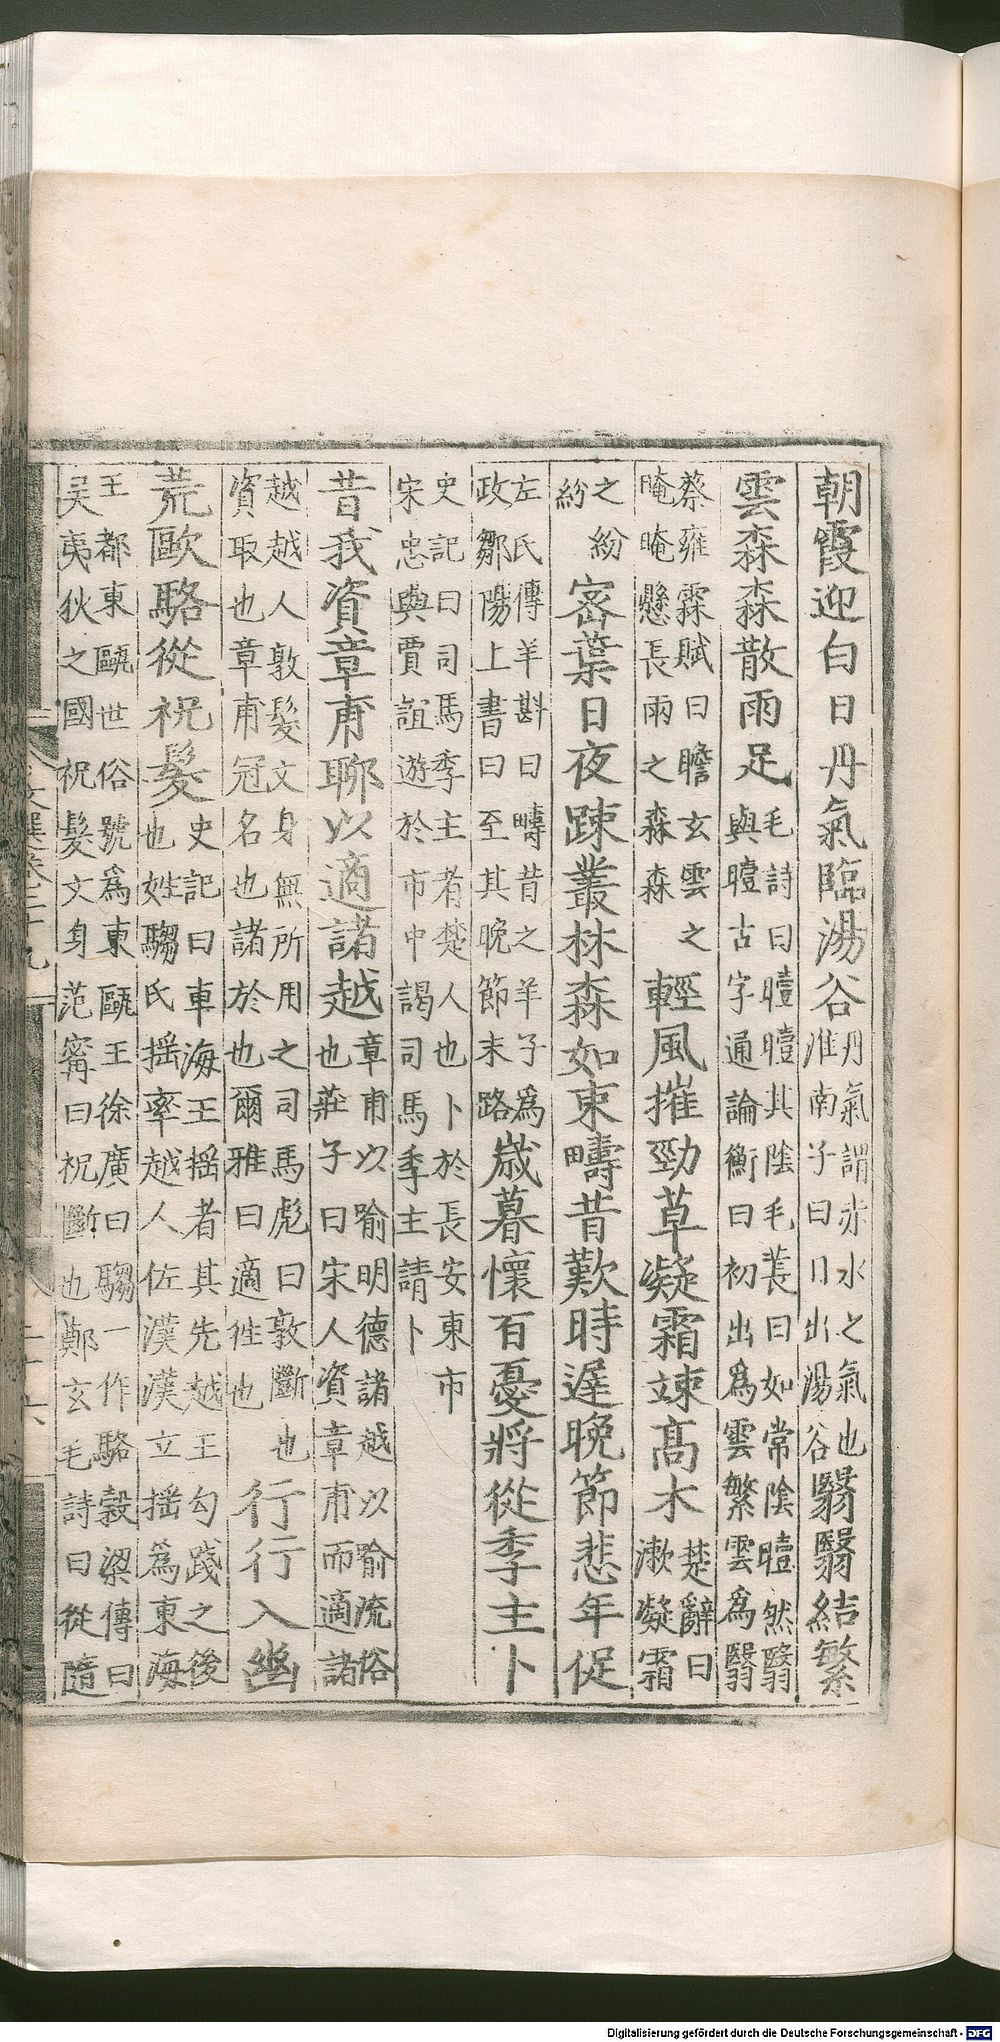 朝霞迎白日丹氣臨湯谷丹氣謂赤水之氣也淮南子曰日出湯谷翳翳結繁
雲森森散雨足毛詩曰曀曀其陰毛萇曰如常陰曀然翳與曀古字通論衡曰初出為雲繁雲為翳
蔡雍霖賦曰瞻玄雲之晻晻懸長雨之森森輕風摧勁草凝霜竦高木楚辭曰漱凝霜
之紛紛密葉日夜踈叢林森如束疇昔歎時遲晚節悲年促
左氏傳羊斟曰疇昔之羊子為政鄒陽上書曰至其晚節末路歲暮懷百憂將從季主卜
史記曰司馬季主者楚人也卜於長安東市宋忠與賈誼遊於市中謁司馬季主請卜
昔我資章甫聊以適諸越章甫以喻明德諸越以喻流俗也莊子曰宋人資章甫而適諸
越越人敦髮文身無所用之司馬彪曰敦斷也資取也章甫冠名也諸於也爾雅曰適徃也行行入幽
荒歐駱從祝髮史記曰車海王揺者其先越王勾踐之後也姓騶氏揺率越人佐漢漢立揺為東海
王都東甌世俗號為東甌王徐廣曰騶一作駱穀梁傳曰吴夷狄之國祝髮文身范寗曰祝斷也鄭玄毛詩曰從隨
文選卷二十九
二十六
Digitalisierung gefördert durch die Deutsche Forschungsgemeinschaft - DFG